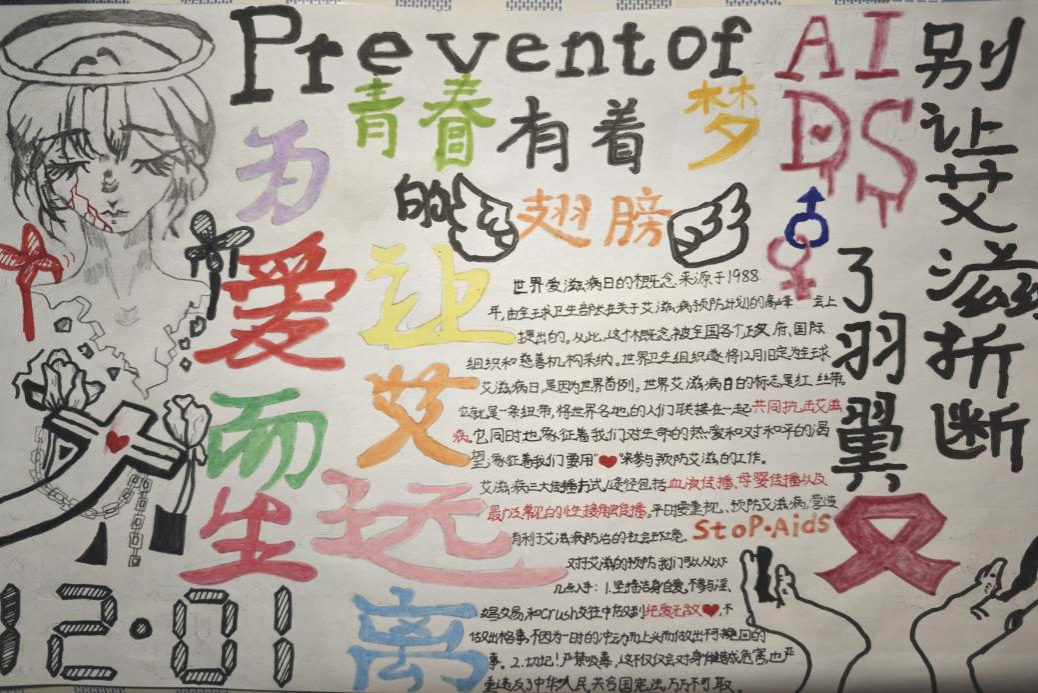 Prevent of AIDS
青春有着梦
的翅膀
别让艾滋折断
了羽翼
为爱而生
让艾远离
世界爱滋病日的概念来源于1988
年,由全球卫生部大臣关于艾滋病预防计划的高峰 会上
提出的。从此,这个概念被全国各个正政府、国际
组织和慈善机构采纳。世界卫生组织遂将12月1日定为全球
艾滋病日,是因为世界首例。世界艾滋病日的标志是红丝带,
它就是一条纽带,将世界各地的人们联接在一起共同抗击艾滋
病。它同时也象征着我们对生命的热爱和对和平的渴
望,象征着我们要用"❤"来参与预防艾滋的工作。
艾滋病三大传播方式/途径包括血液传播、母婴传播以及
最广泛常见的性接触传播。平日要重视、预防艾滋病,营造
有利于艾滋病防治的社会环境。
StoP·Aids
对于艾滋的预防我们可以从以下
几点入手:1.坚持洁身自爱,不参与淫、
娼交易,和Crush交往中做到纯爱无敌❤,不
做出格事,不因为一时的冲动而上头而做出不可挽回的
事。2.切记!严禁吸毒,这不仅仅会对身体造成危害,也严
重违反了中华人民共合国宪法,万万不可取
12·01